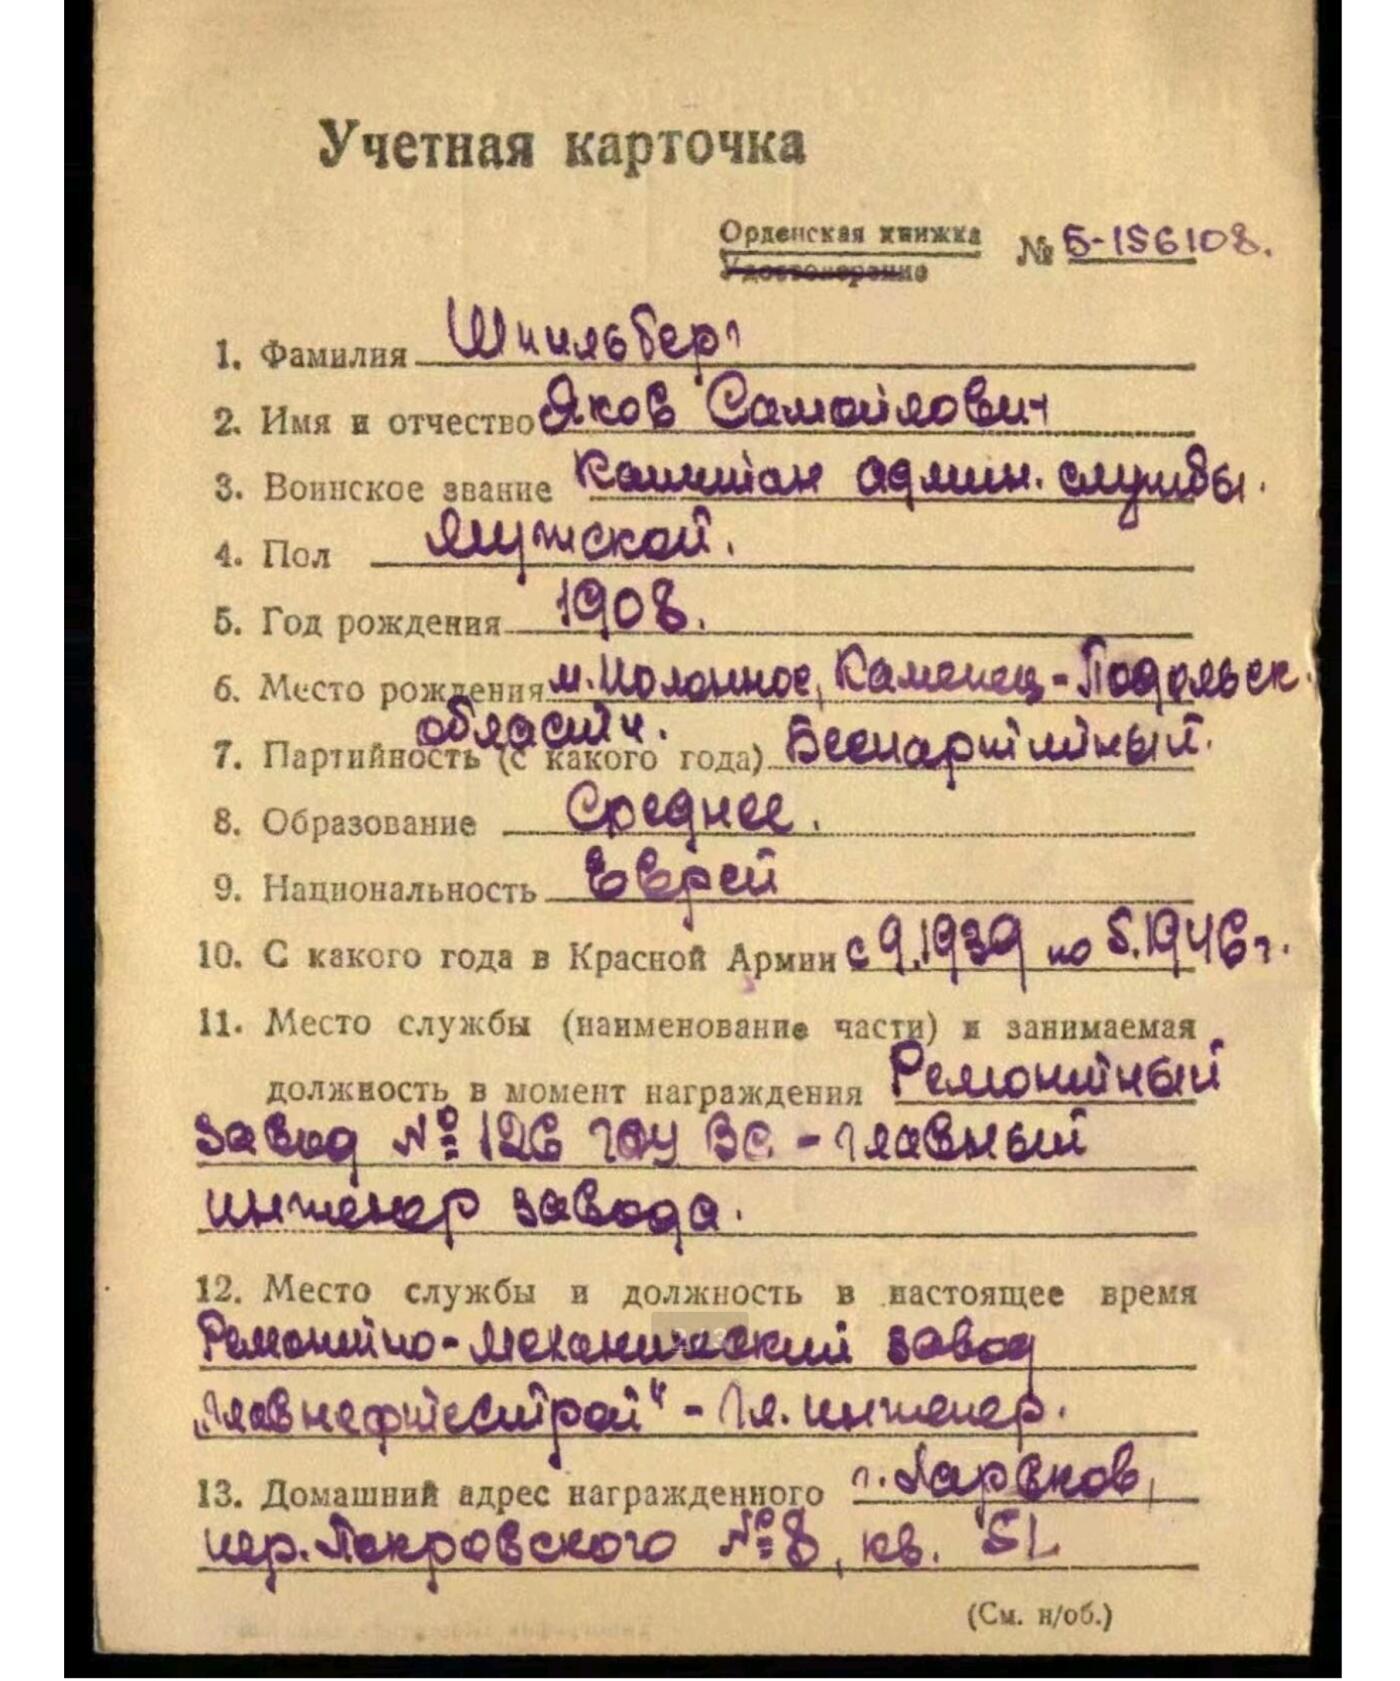 Учетная карточка
Орденская книжка
Удостоверение
№ Б-156108.
1. Фамилия Шпильберг
2. Имя и отчество Яков Самойлович
3. Воинское звание Капитан админ. службы.
4. Пол Мужской.
5. Год рождения 1908.
6. Место рождения м. Полонное, Каменец-Подольск.
области.
7. Партийность (с какого года) Беспартийный.
8. Образование Среднее.
9. Национальность Еврей
10. С какого года в Красной Армии с 9.1939 по 5.1946 г.
11. Место службы (наименование части) и занимаемая
должность в момент награждения Ремонтный
завод № 126 ГАУ ВС - главный
инженер завода.
12. Место службы и должность в настоящее время
Ремонтно-механический завод
„Главнефтестрой" - Гл. инженер.
13. Домашний адрес награжденного г. Харьков,
пер. Покровского № 8, кв. 51
(См. н/об.)